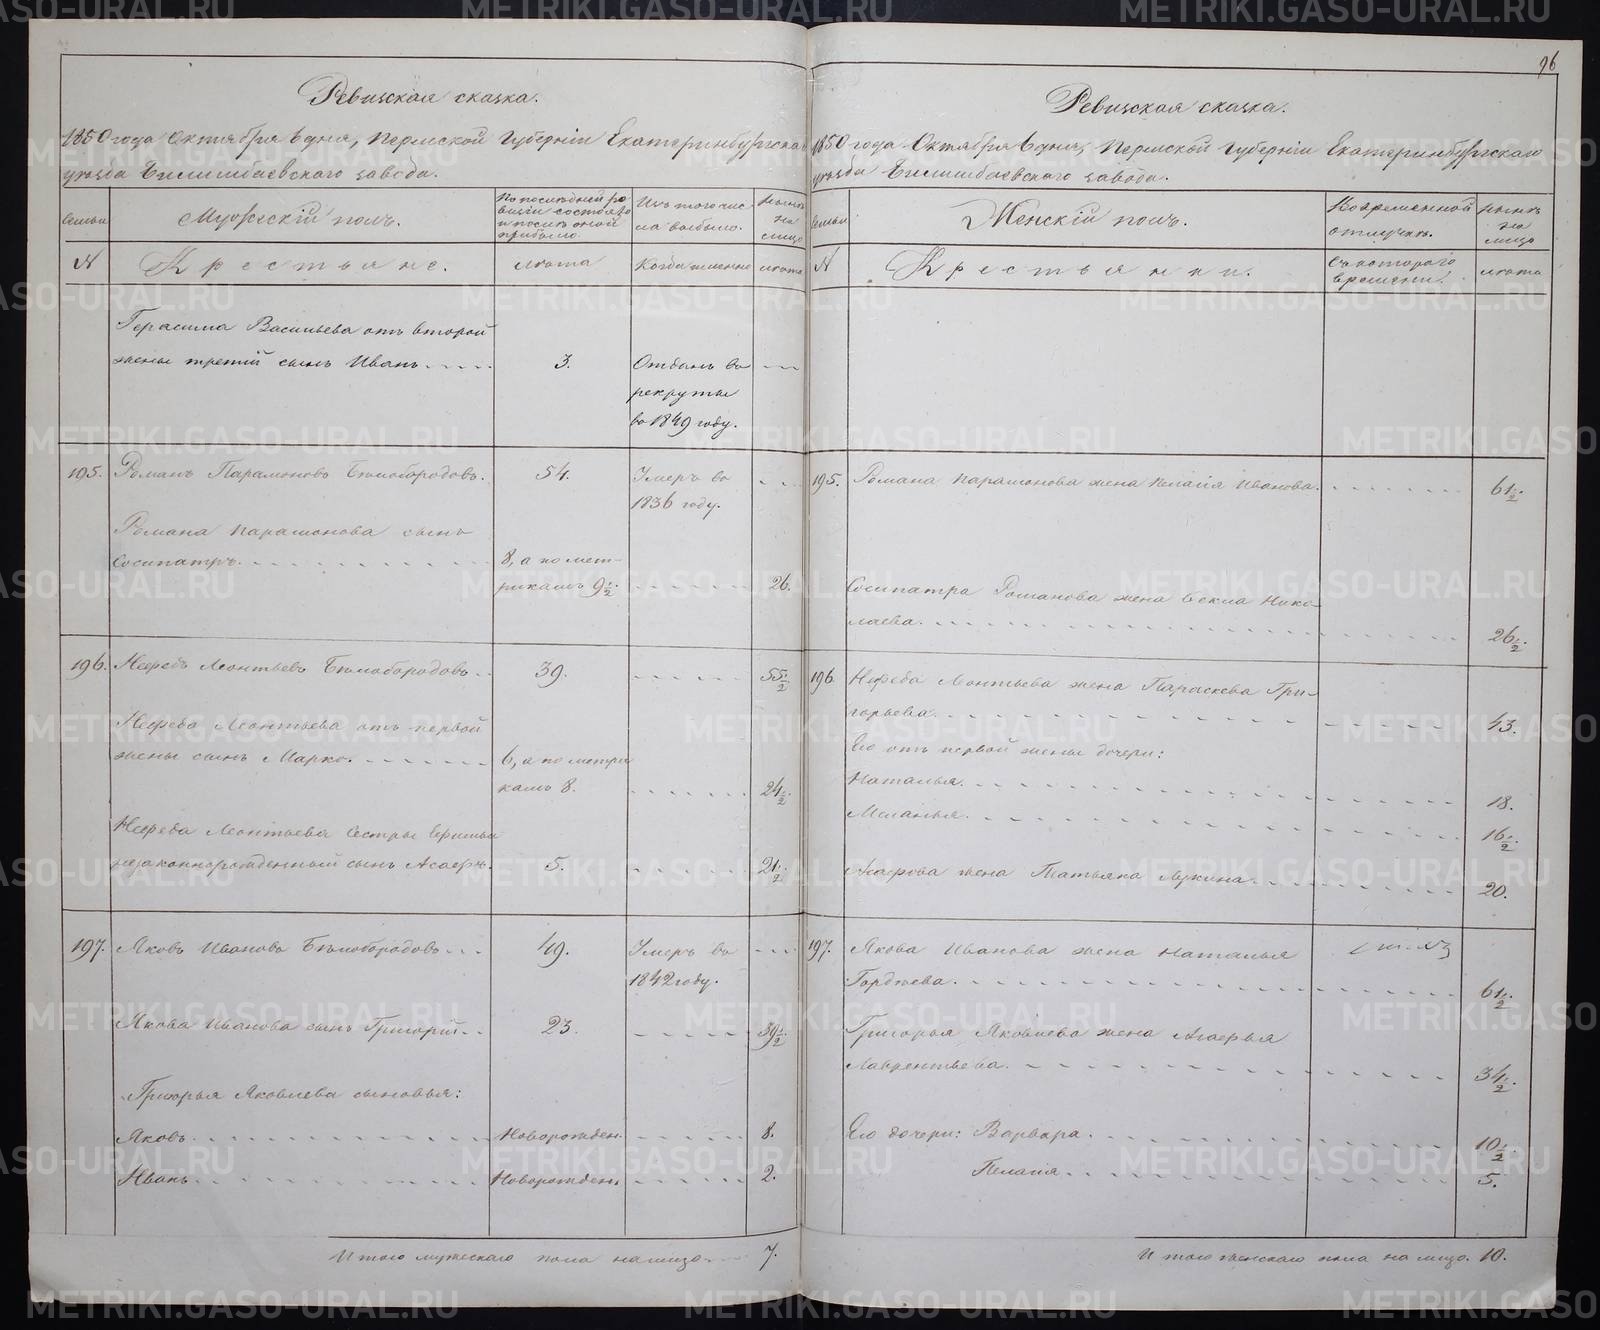 96
Ревизская сказка.
1850 года Октября 6 дня, Пермской Губернiи Екатеринбургска
уѣзда Билимбаевского завода.
семьи
Мужескiй полъ.
По послѣдней ре
визiи состояло
и послѣ оной
прибыло
Изъ того чис-
ла выбыло.
нынѣ
на
лицо
№
Крестьяне.
лѣта
Когда именно
лѣта
Герасима Васильева отъ второй
жены третiй сынъ Иванъ
3.
Отданъ въ
рекруты
въ 1849 году.
195.
Романъ Парамоновъ Бѣлобородовъ.
54.
Умеръ въ
1836 году.
Романа Парамонова сынъ
Сосипатръ.
8, а по мет-
рикамъ 9 1/2.
26.
196.
Нефедъ Леонтьевъ Бѣлобородовъ
39.
55 1/2
Нефеда Леонтьева отъ первой
жены сынъ Марко.
6, а по метри
камъ 8.
24 1/2
Нефеда Леонтьева сестры
незаконнорожденный сынъ Агафъ.
5.
21 1/2
197.
Яковъ Ивановъ Бѣлобородовъ
49.
Умеръ въ
1842 году.
Якова Иванова сынъ Григорiй
23.
39 1/2
Григорья Яковлева сыновья:
Яковъ
Новорожден.
8.
Иванъ
Новорожден.
2.
Итого мужескаго пола налицо
7.
Ревизская сказка.
1850 года Октября 6 дня, Пермской Губернiи Екатеринбургскаго
уѣзда Билимбаевского завода.
семьи
Женскiй полъ.
Во временной
отлучкѣ.
нынѣ
на
лицо
№
Крестьянки.
Съ котораго
времени.
лѣта
195.
Романа Парамонова жена Пелагiя Иванова.
61 1/2.
Сосипатра Романова жена Ѳекла Нико-
лаева.
26 1/2.
196.
Нефеда Леонтьева жена Параскева Гри-
горьева.
43.
Его отъ первой жены дочери:
Наталья.
18.
Меланья.
16 1/2.
Агафова жена Татьяна Лукина.
20.
197.
Якова Иванова жена Наталья
Гордѣева.
61 1/2.
Григорья Яковлева жена Агафья
Лаврентьева.
34 1/2.
Его дочери: Варвара.
10 1/2.
Пелагiя.
5.
Итого женскаго пола налицо. 10.
METRIKI.GASO-URAL.RU